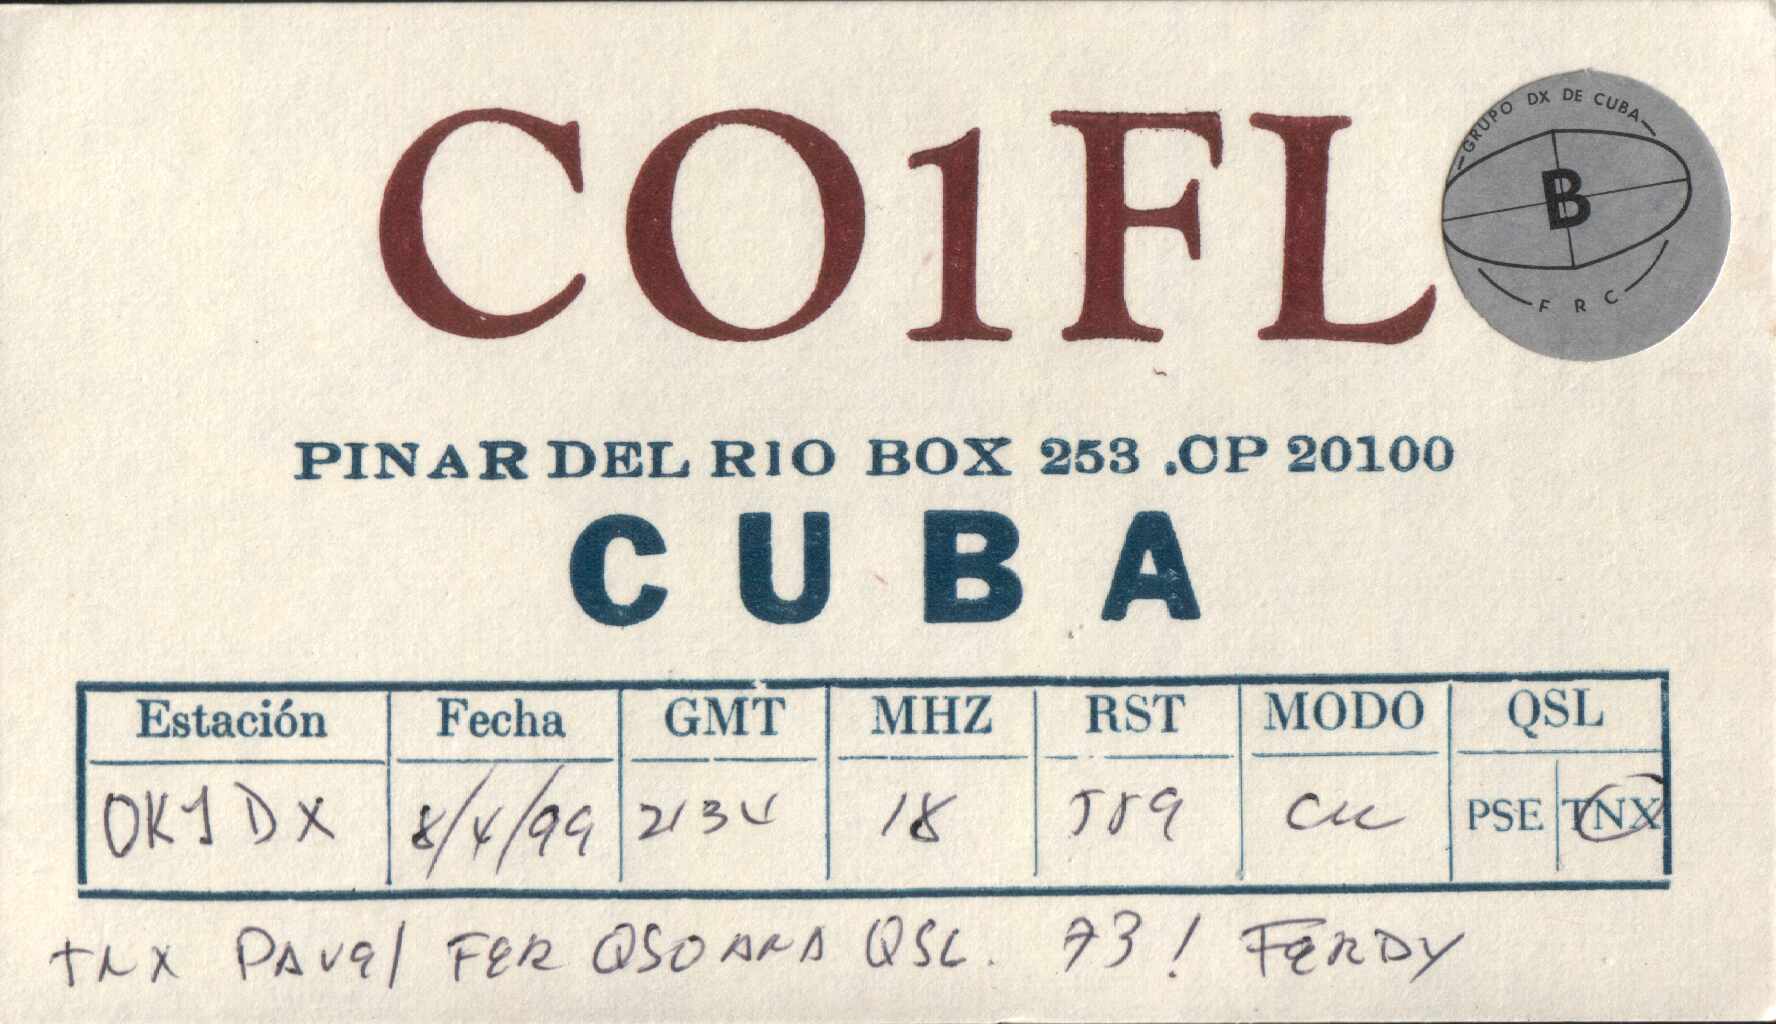 CO1FL
GRUPO DX DE CUBA
B
F R C
PINAR DEL RIO BOX 253 .CP 20100
CUBA
Estación Fecha GMT MHZ RST MODO QSL
OK1DX 8/4/99 2134 18 589 CW PSE TNX
TNX PAVEL FER QSO AND QSL. 73! FERDY